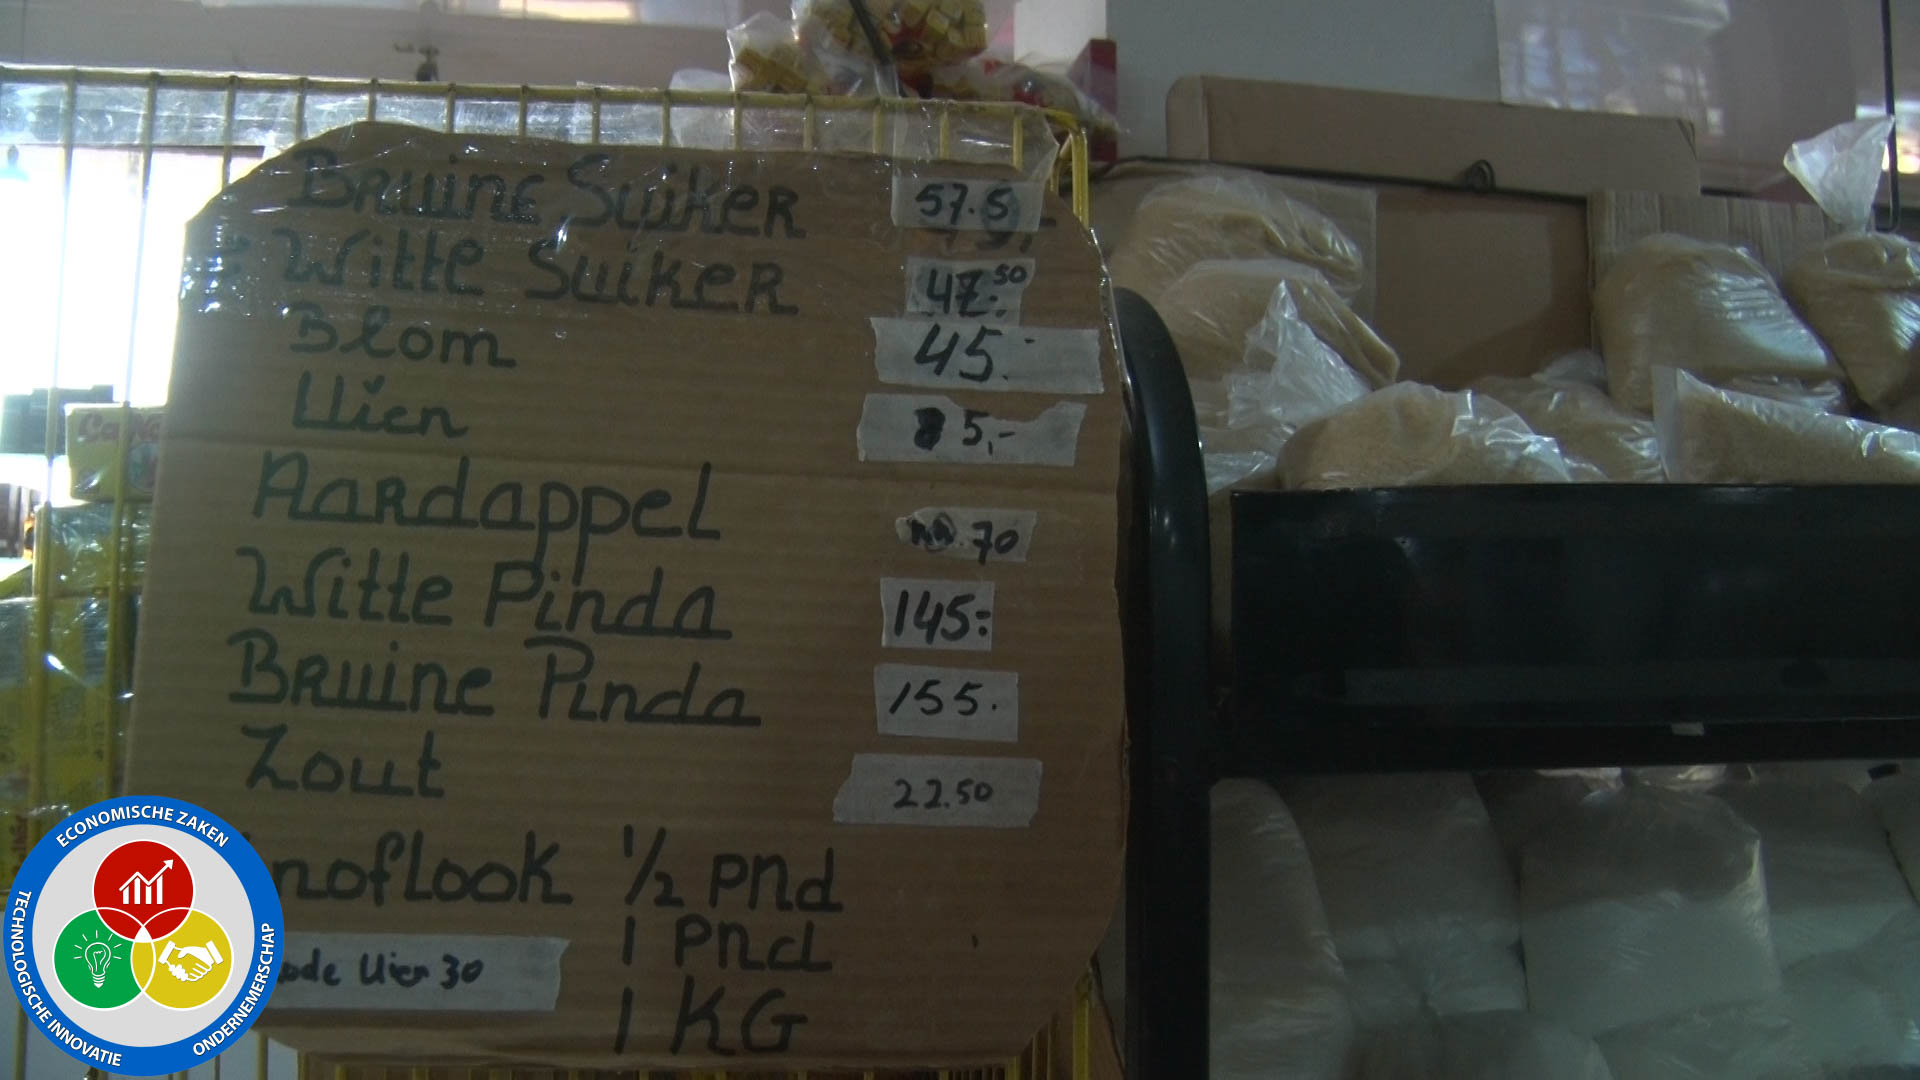 Bruine Suiker 57.5
Witte Suiker 47.50
Blom 45.-
Uien 5,-
Aardappel 70
Witte Pinda 145.-
Bruine Pinda 155.
Zout 22.50
noflook 1/2 pnd
1 pnd
ode Uien 30
1 KG
ECONOMISCHE ZAKEN
TECHNOLOGISCHE INNOVATIE
ONDERNEMERSCHAP